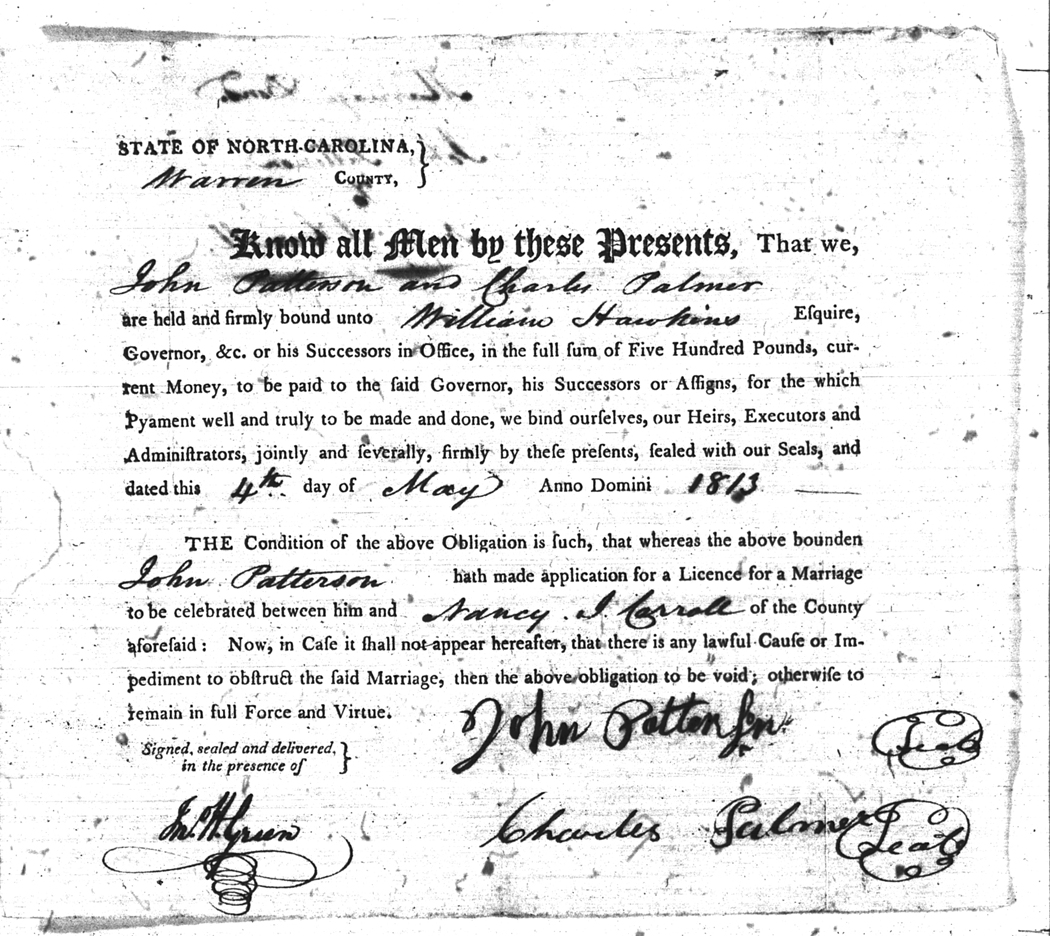 STATE OF NORTH-CAROLINA,
Warren COUNTY,
Know all Men by these Presents, That we,
John Patterson and Charles Palmer
are held and firmly bound unto William Hawkins Eſquire,
Governor, &c. or his Successors in Office, in the full ſum of Five Hundred Pounds, cur-
rent Money, to be paid to the ſaid Governor, his Successors or Aſſigns, for the which
Pyament well and truly to be made and done, we bind ourſelves, our Heirs, Executors and
Adminiſtrators, jointly and ſeverally, firmly by theſe preſents, ſealed with our Seals, and
dated this 4th day of May Anno Domini 1813
THE Condition of the above Obligation is ſuch, that whereas the above bounden
John Patterson hath made application for a Licence for a Marriage
to be celebrated between him and Nancy J Carroll of the County
aforeſaid : Now, in Caſe it ſhall not appear hereafter, that there is any lawful Cauſe or Im-
pediment to obſtruct the ſaid Marriage, then the above obligation to be void; otherwiſe to
remain in full Force and Virtue.
John Patterson
Seal
Signed, sealed and delivered,
in the presence of
Jno. H. Green
Charles Palmer
Seal